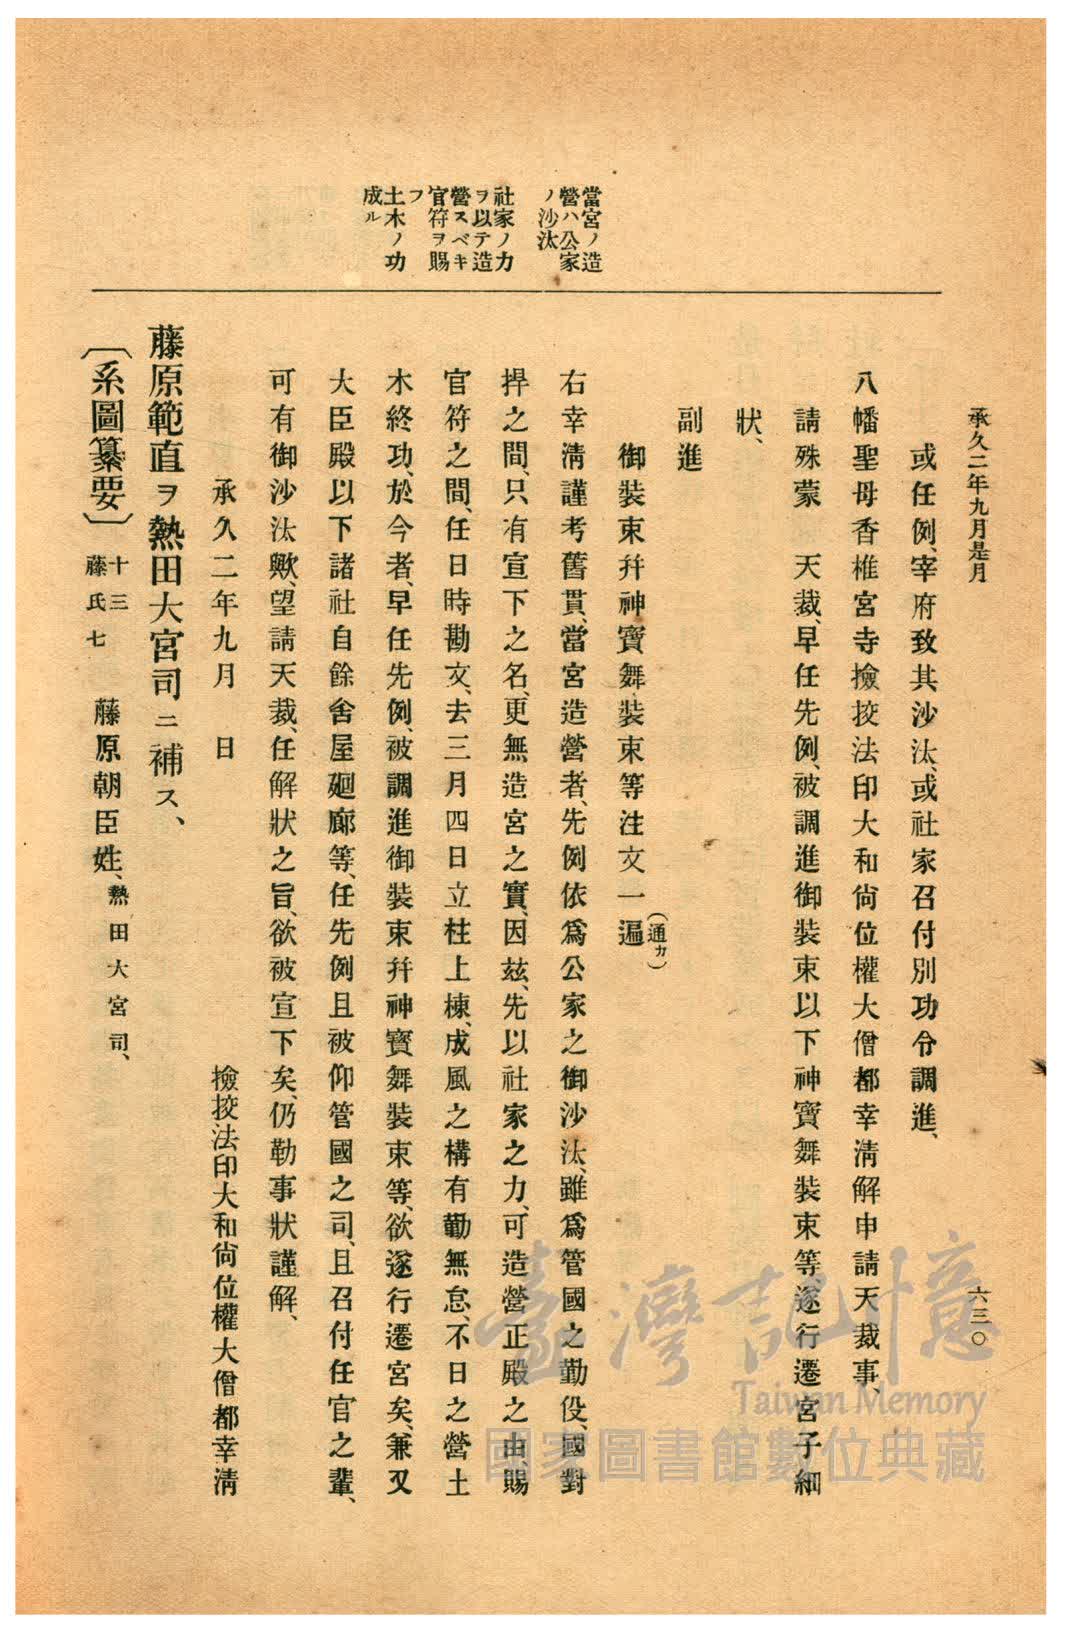 承久二年九月是月
六三〇
當宮ノ造
營ハ公家
ノ沙汰
社家ノ力
ヲ以テ造
營スベキ
官符ヲ賜
フ
土木ノ功
成ル
或任例、宰府致其沙汰、或社家召付別功令調進、
八幡聖母香椎宮寺撿挍法印大和尙位權大僧都幸淸解申請天裁事、
請殊蒙 天裁、早任先例、被調進御裝束以下神寶舞裝束等、遂行遷宮子細
狀、
副進
御裝束幷神寶舞裝束等注文一遍(通カ)
右幸淸謹考舊貫、當宮造營者、先例依爲公家之御沙汰、雖爲管國之勤役、國對
捍之間、只有宣下之名、更無造宮之實、因玆、先以社家之力、可造營正殿之由、賜
官符之間、任日時勘文、去三月四日立柱上棟、成風之構有勤無怠、不日之營土
木終功、於今者、早任先例、被調進御裝束幷神寶舞裝束等、欲遂行遷宮矣、兼又
大臣殿以下諸社自餘舍屋廻廊等、任先例且被仰管國之司、且召付任官之輩、
可有御沙汰歟、望請天裁、任解狀之旨、欲被宣下矣、仍勒事狀謹解、
承久二年九月 日
撿挍法印大和尙位權大僧都幸淸
藤原範直ヲ熱田大宮司ニ補ス、
〔系圖纂要〕 十三 藤氏七 藤原朝臣姓、熱田大宮司、
臺灣記憶
Taiwan Memory
國家圖書館數位典藏